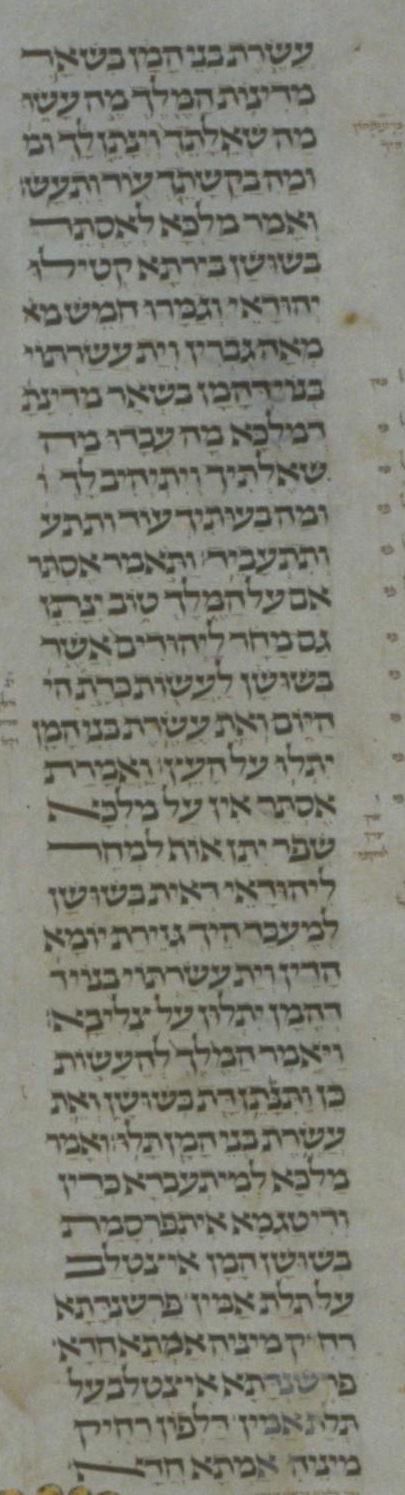 עשרת בני המן בשאר
מדינות המלך מה עשו
מה שאלתך וינתן לך ומ
ומה בקשתך עוד ותעש
ואמר מלכא לאסתר
בשושן בירתא קטילו
יהודאי וגמרו חמש מא
מאה גברין וית עשרתי
בנוי דהמן בשאר מדינת
דמלכא מה עבדו מה
שאלתיך ויתיהיב לך ו
ומה בעותיך עוד ותתע
ותתעביד ותאמר אסתר
אם על המלך טוב ינתן
גם מחר ליהודים אשר
בשושן לעשות כדת הי
היום ואת עשרת בני המן
יתלו על העץ ואמרת
אסתר אין על מלכא
שפר יתן אות למחר
ליהודאי דאית בשושן
למעבד היך גזירת יומא
הדין וית עשרתי בנוי ד
דהמן יתלון על צליבא
ויאמר המלך להעשות
כן ותנתן דת בשושן ואת
עשרת בני המן תלו ואמר
מלכא למיתעבדא כדין
ודיטגמא איתפרסמת
בשושן המן איצטלב
על תלת אמין פרשנדתא
רחיק מיניה אמתא חדא
פרשנדתא איצטלב על
תלת אמין דלפון רחיק
מיניה אמתא חדא